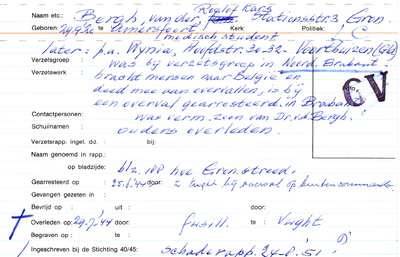 Roelof Kars
Naam etc.: Bergh, van der Stationsstr. 3 Gron.
Geboren: te Amersfoort Kerk: Politiek:
medisch student
later: p.a. Wynia, Hoofdstr. 30-32 - Voorthuizen (Gld)
Verzetsgroep was bij verzetsgroep in Noord. Brabant.
Verzetswerk : bracht mensen naar België en
deed mee aan overvallen, is bij
een overval gearresteerd, in Brabant
Contactpersonen: was verm. zoon van Dr. v.d. Bergh.
Schuilnamen : ouders overleden.
Verzetsrapp. ingel. dd. : bij:
Naam genoemd in rapp.:
op bladzijde: blz. 188 hoe Gron. streed.
Gearresteerd op : door:
Gevangen gezeten in :
Bevrijd op : uit : door:
Overleden op: door: fusill. te : Vught
Begraven op : te :
Ingeschreven bij de Stichting 40/45: schaderapp. 24-8-'51
CV